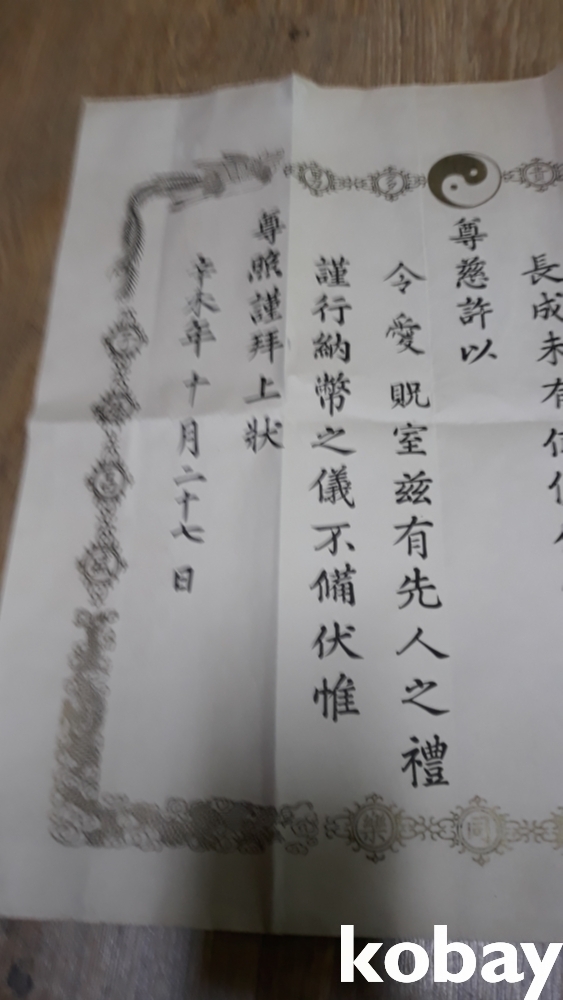 長成未有
尊慈許以
令愛貺室玆有先人之禮
謹行納幣之儀不備伏惟
尊照謹拜上狀
辛未年十月二十七日
同樂
kobay